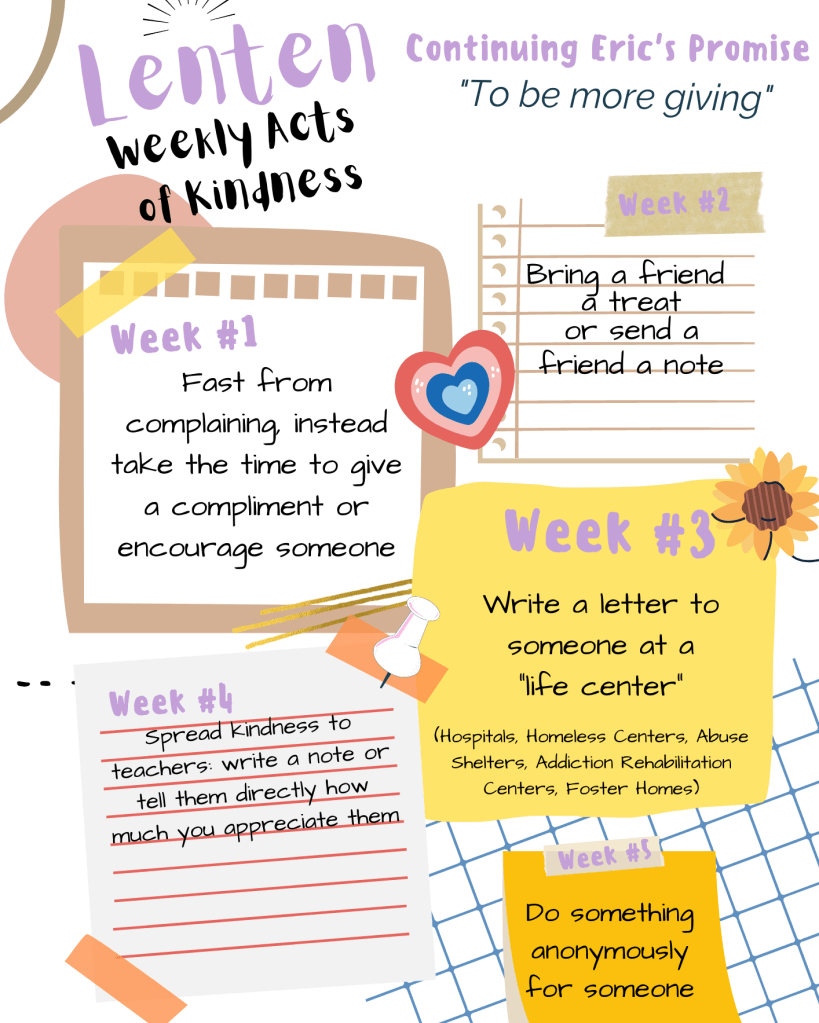 Lenten
Weekly Acts
of Kindness
Continuing Eric's Promise
"To be more giving"
Week #1
Fast from
complaining, instead
take the time to give
a compliment or
encourage someone
Week #2
Bring a friend
a treat
or send a
friend a note
Week #3
Write a letter to
someone at a
"life center"
(Hospitals, Homeless Centers, Abuse
Shelters, Addiction Rehabilitation
Centers, Foster Homes)
Week #4
Spread kindness to
teachers: write a note or
tell them directly how
much you appreciate them
Week #5
Do something
anonymously
for someone